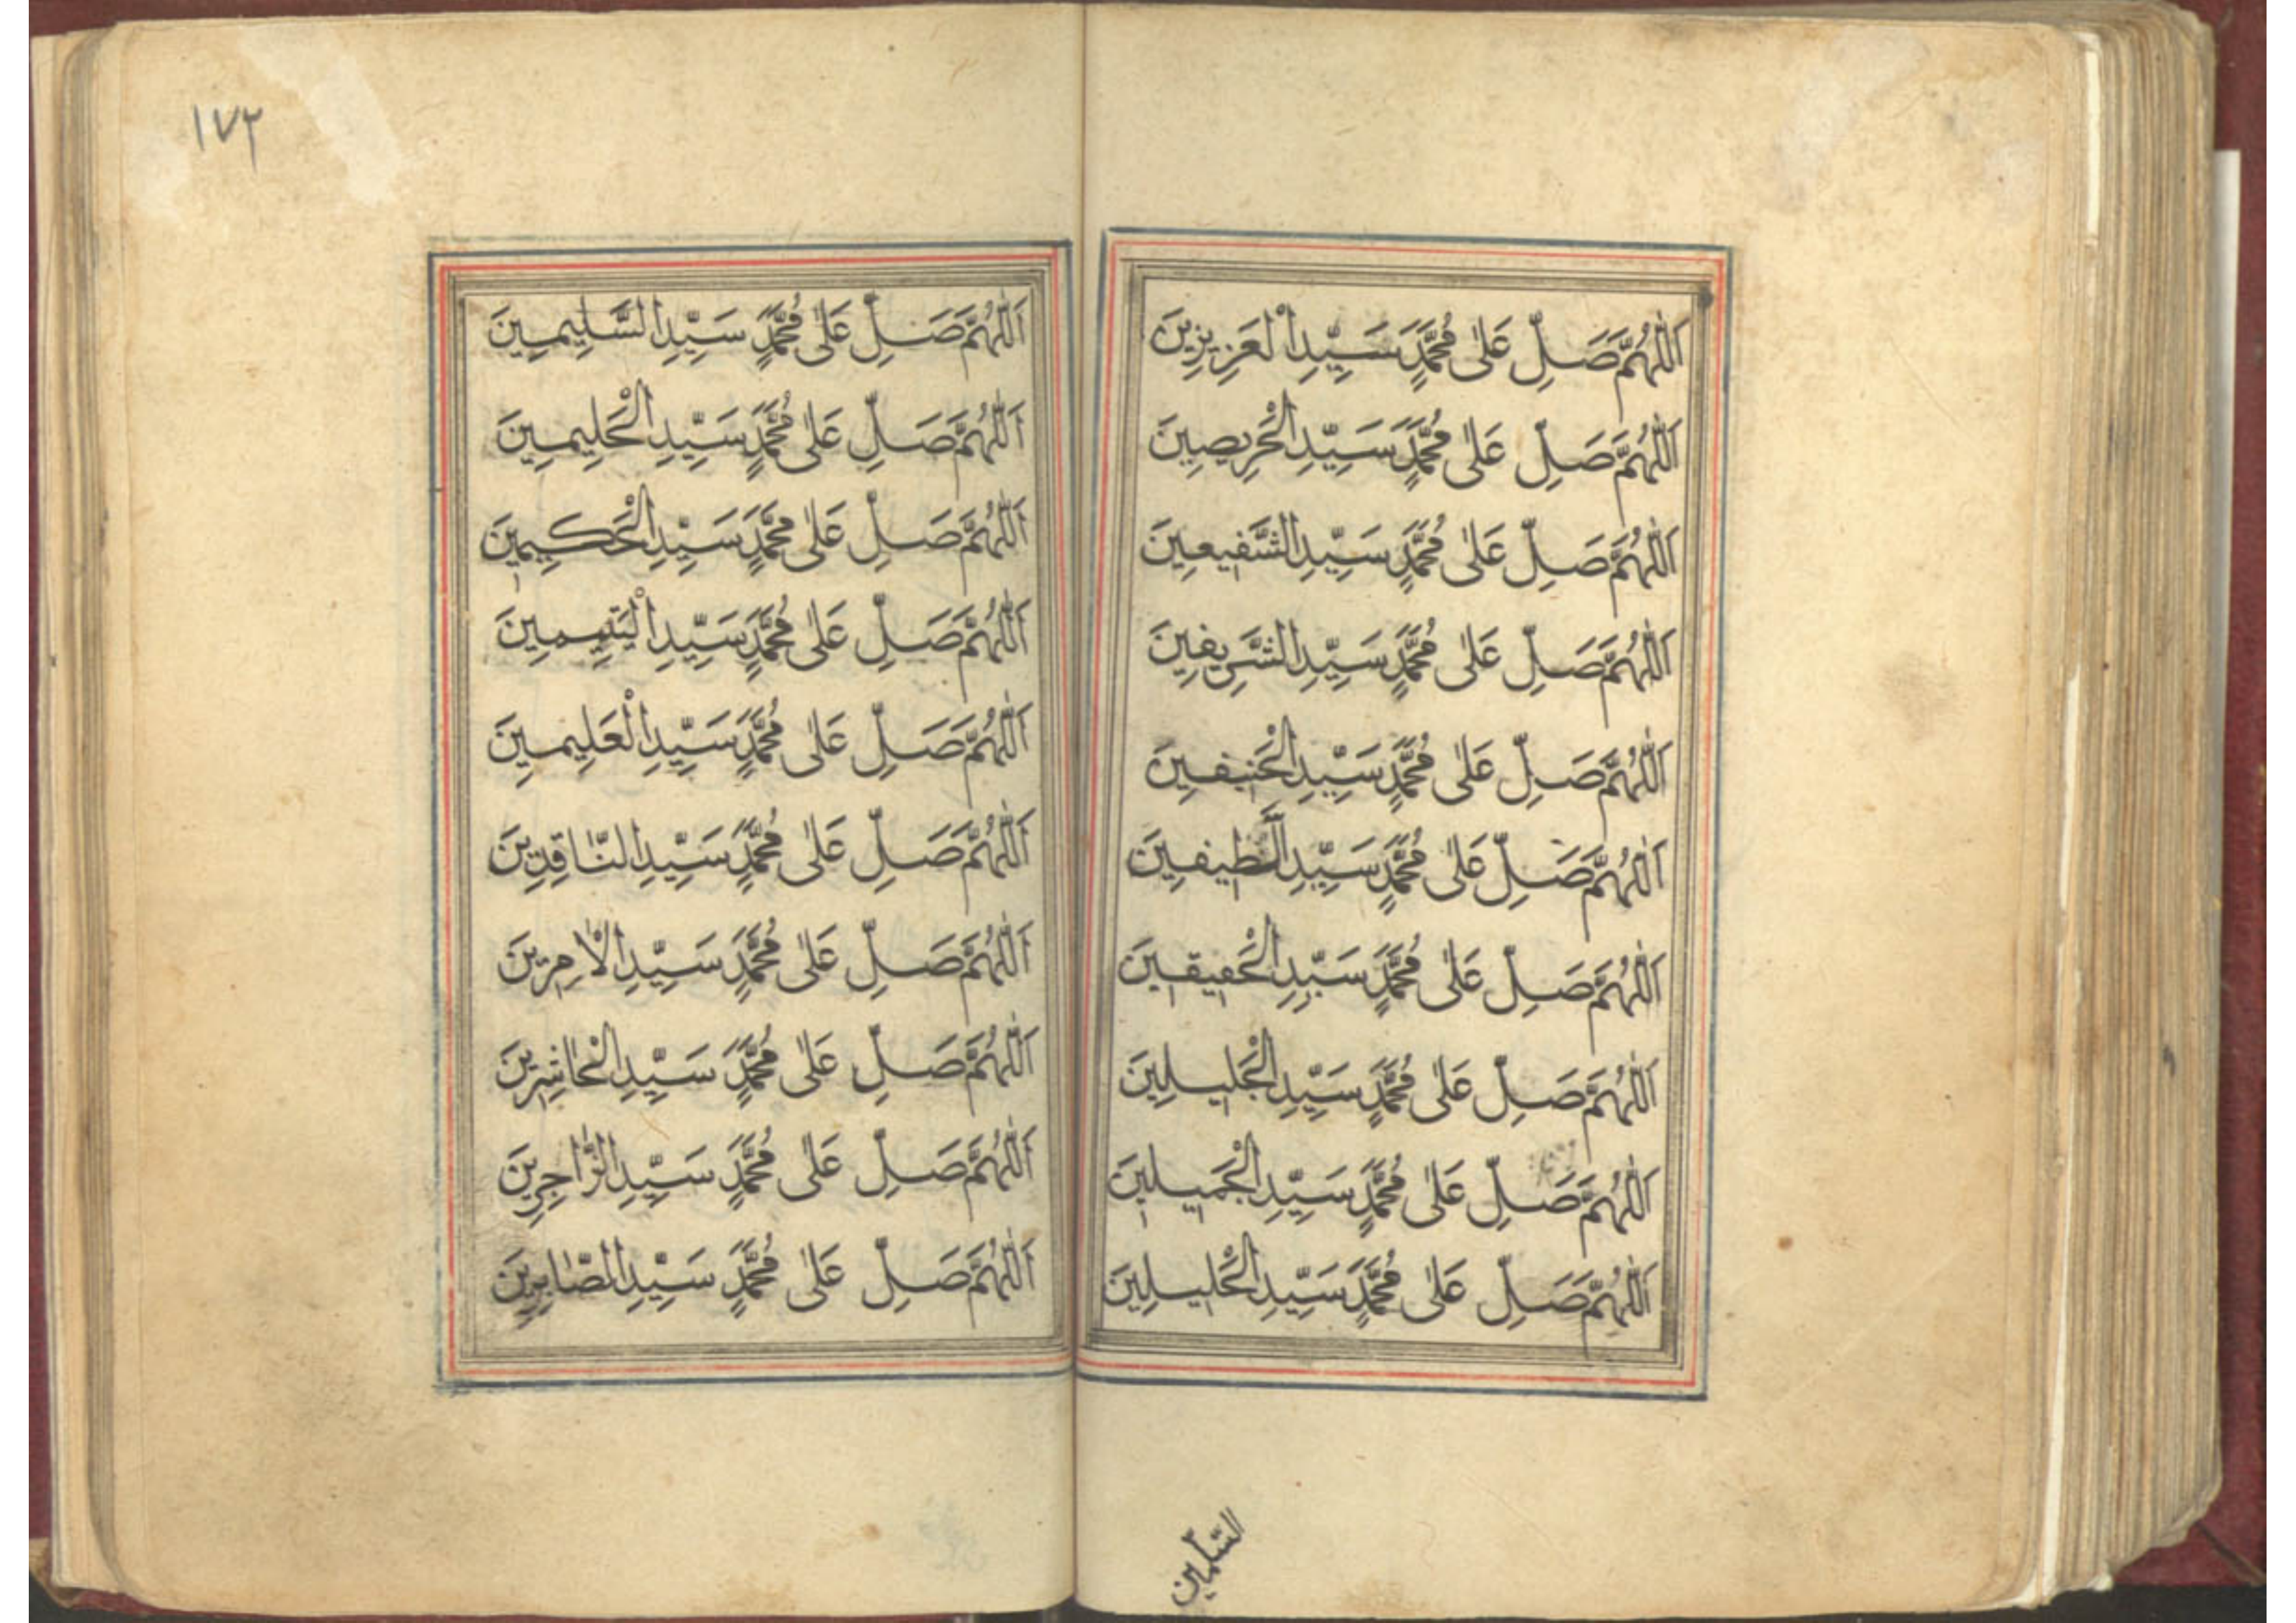 اَللّٰهُمَّ صَلِّ عَلٰى مُحَمَّدٍ سَيِّدِ الْعَزِيزِينَ
اَللّٰهُمَّ صَلِّ عَلٰى مُحَمَّدٍ سَيِّدِ الْحَرِيصِينَ
اَللّٰهُمَّ صَلِّ عَلٰى مُحَمَّدٍ سَيِّدِ الشَّفِيعِينَ
اَللّٰهُمَّ صَلِّ عَلٰى مُحَمَّدٍ سَيِّدِ الشَّرِيفِينَ
اَللّٰهُمَّ صَلِّ عَلٰى مُحَمَّدٍ سَيِّدِ الْحَنِيفِينَ
اَللّٰهُمَّ صَلِّ عَلٰى مُحَمَّدٍ سَيِّدِ
اَللّٰهُمَّ صَلِّ عَلٰى مُحَمَّدٍ سَيِّدِ الْحَفِيقِينَ
اَللّٰهُمَّ صَلِّ عَلٰى مُحَمَّدٍ سَيِّدِ الْجَلِيلِينَ
اَللّٰهُمَّ صَلِّ عَلٰى مُحَمَّدٍ سَيِّدِ الْجَمِيلِينَ
اَللّٰهُمَّ صَلِّ عَلٰى مُحَمَّدٍ سَيِّدِ الْخَلِيلِينَ
السّليمين
١٧٣
اَللّٰهُمَّ صَلِّ عَلٰى مُحَمَّدٍ سَيِّدِ السَّلِيمِينَ
اَللّٰهُمَّ صَلِّ عَلٰى مُحَمَّدٍ سَيِّدِ الْحَلِيمِينَ
اَللّٰهُمَّ صَلِّ عَلٰى مُحَمَّدٍ سَيِّدِ الْحَكِيمِينَ
اَللّٰهُمَّ صَلِّ عَلٰى مُحَمَّدٍ سَيِّدِ الْيَتِيمِينَ
اَللّٰهُمَّ صَلِّ عَلٰى مُحَمَّدٍ سَيِّدِ الْعَلِيمِينَ
اَللّٰهُمَّ صَلِّ عَلٰى مُحَمَّدٍ سَيِّدِ النَّاقِدِينَ
اَللّٰهُمَّ صَلِّ عَلٰى مُحَمَّدٍ سَيِّدِ الْاٰمِرِينَ
اَللّٰهُمَّ صَلِّ عَلٰى مُحَمَّدٍ سَيِّدِ الْحَاشِرِينَ
اَللّٰهُمَّ صَلِّ عَلٰى مُحَمَّدٍ سَيِّدِ الزَّاجِرِينَ
اَللّٰهُمَّ صَلِّ عَلٰى مُحَمَّدٍ سَيِّدِ الصَّابِرِينَ